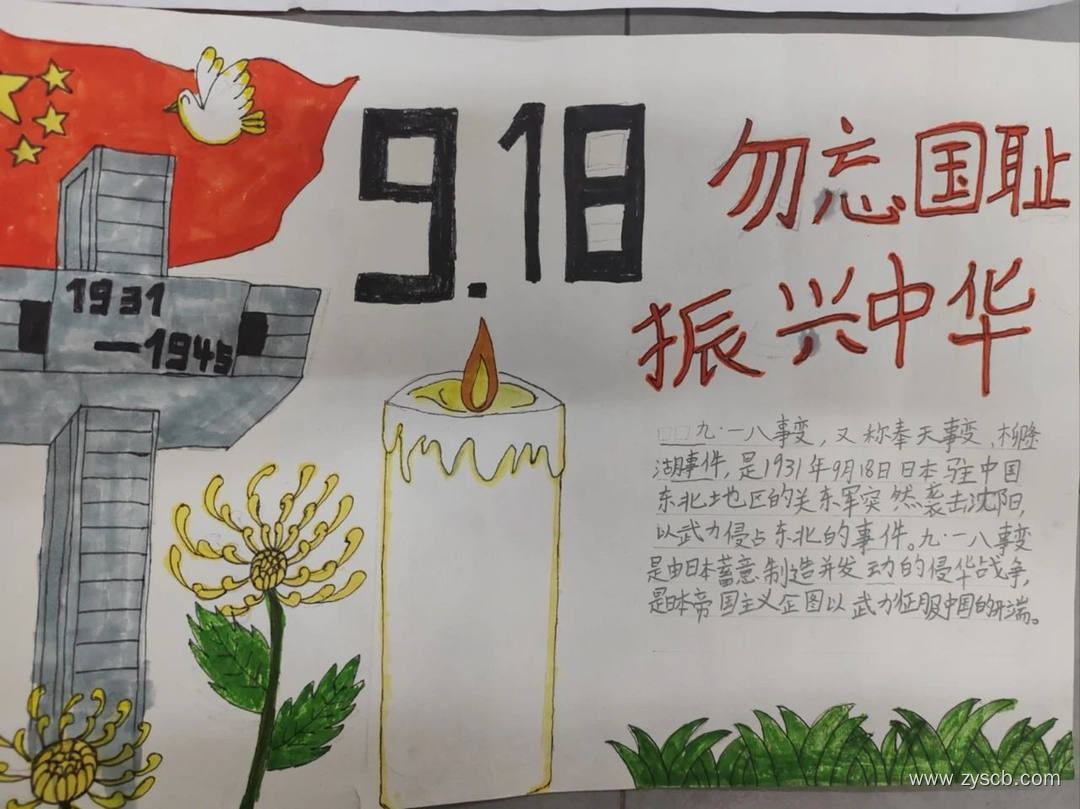 1931
—1945
9.18
勿忘国耻
振兴中华
九·一八事变，又称奉天事变、柳条
湖事件，是1931年9月18日日本驻中国
东北地区的关东军突然袭击沈阳，
以武力侵占东北的事件。九·一八事变
是由日本蓄意制造并发动的侵华战争，
是日本帝国主义企图以武力征服中国的开端。
www.zyscb.com